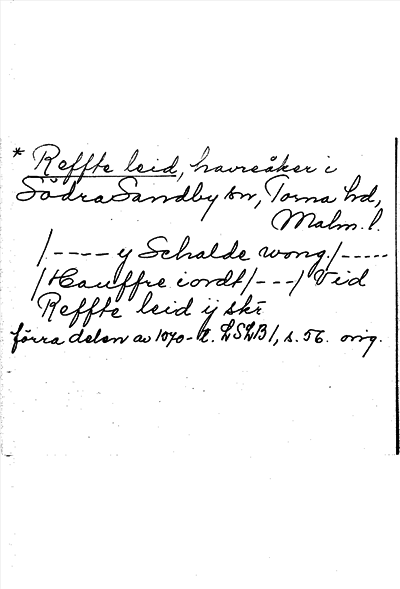 * Reffte leid, havreåker i
Södra Sandby sn, Torna hd,
Malm. l.
/---- y Schalde wong /-----
/Hauffre iordt /---/ Vid
Reffte leid ij skr
förra delen av 1570-t. LSLB1, s. 56. orig.